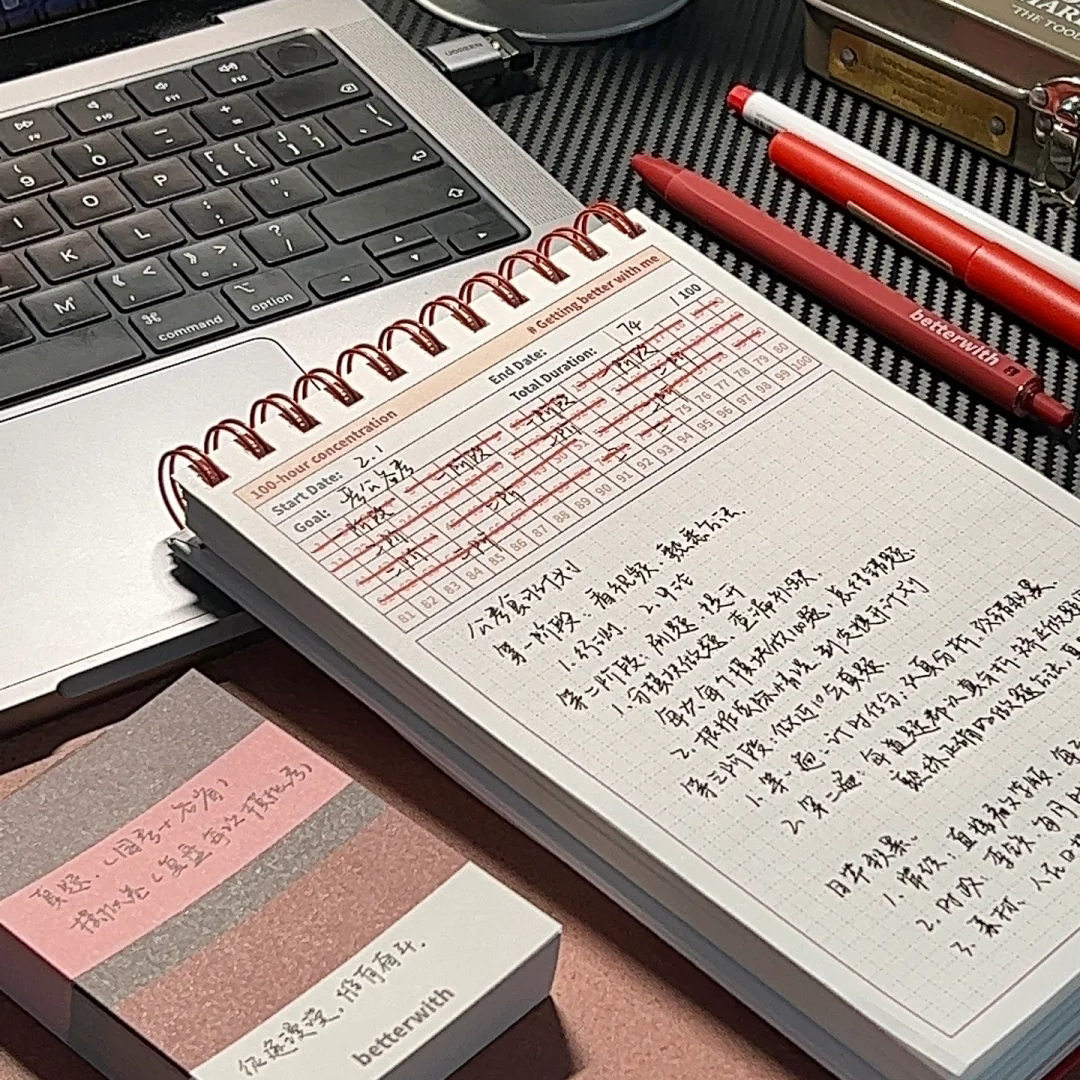 UGREEN
THE TOOL
F9 F10 F11 F12
9 0 - + =
I O P { [ } ] | \
K L : ; " '
M 《 < , 》 > 。 . ? /
⌘ command ⌥ option
betterwith
# Getting better with me
100-hour concentration
Start Date: 2.1 End Date:
Goal: 考公省考 Total Duration: 74 / 100
一阶段 一阶段 一阶段
二阶 二阶
75 76 77 78 79 80
81 82 83 84 85 86 87 88 89 90 91 92 93 94 95 96 97 98 99 100
公考复习计划
第一阶段：看视频、熟悉方法.
1. 行测 2. 申论
第二阶段：刷题、提升
1. 分模块做题、查漏补缺.
每次每个模块做10题，总结错题.
2. 根据实际情况制定提升计划
第三阶段：做近10年真题.
1. 第一遍：计时任务；认真分析
2. 第二遍：每道题都认真分析，矫正做题
熟练正确的做题方法，
日常积累.
1. 常识：直接看文字版，
2. 时政：
3. 素材、人民日
真题.（国考+省考）
模拟卷（复盘每次模拟考）
征途漫漫，惟有奋斗.
betterwith